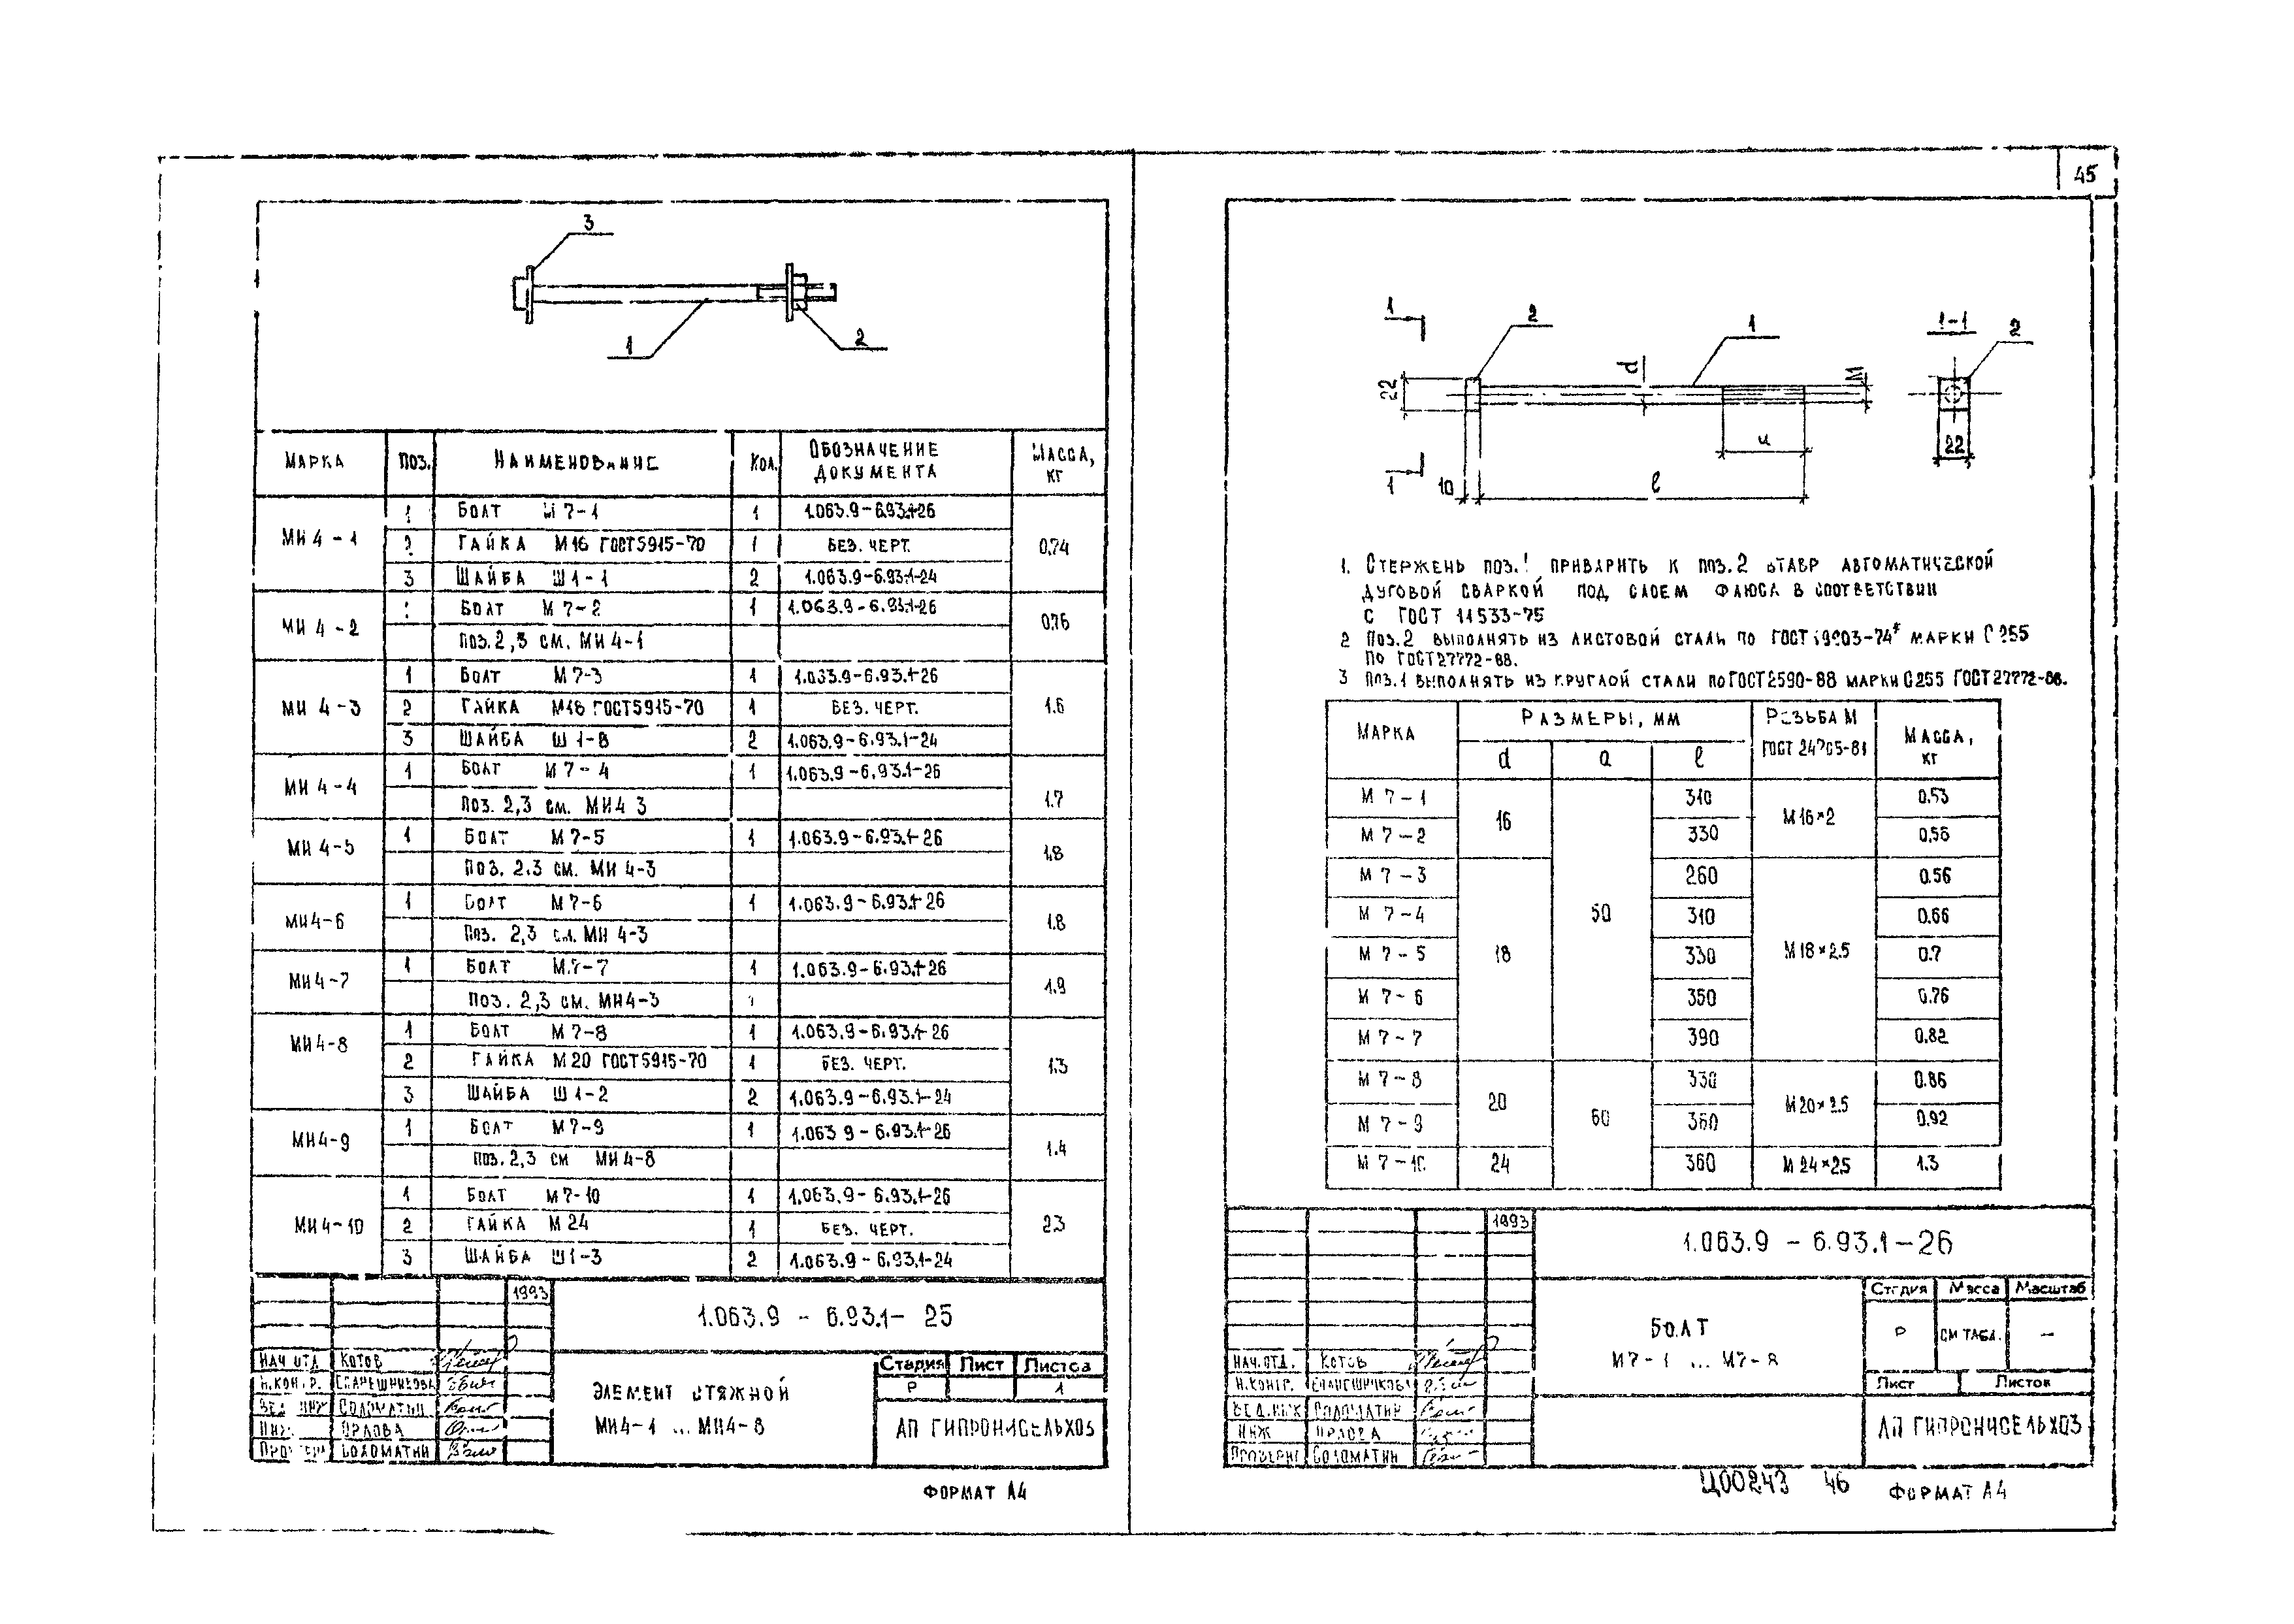 45
3
1
2
МАРКА ПОЗ. НАИМЕНОВАНИЕ КОЛ. ОБОЗНАЧЕНИЕ ДОКУМЕНТА МАССА, КГ
МИ 4-1 1 БОЛТ М 7-1 1 1.063.9-6.93.1-26 0.74
2 ГАЙКА М16 ГОСТ 5915-70 1 БЕЗ. ЧЕРТ.
3 ШАЙБА Ш 1-1 2 1.063.9-6.93.1-24
МИ 4-2 1 БОЛТ М 7-2 1 1.063.9-6.93.1-26 0.76
ПОЗ. 2,3 СМ. МИ 4-1
МИ 4-3 1 БОЛТ М 7-3 1 1.063.9-6.93.1-26 1.6
2 ГАЙКА М18 ГОСТ 5915-70 1 БЕЗ. ЧЕРТ.
3 ШАЙБА Ш 1-8 2 1.063.9-6.93.1-24
МИ 4-4 1 БОЛТ М 7-4 1 1.063.9-6.93.1-26 1.7
ПОЗ. 2,3 СМ. МИ4 3
МИ 4-5 1 БОЛТ М 7-5 1 1.063.9-6.93.1-26 1.8
ПОЗ. 2.3 СМ. МИ 4-3
МИ4-6 1 БОЛТ М 7-6 1 1.063.9-6.93.1-26 1.8
ПОЗ. 2,3 СМ. МИ 4-3
МИ4-7 1 БОЛТ М.7-7 1 1.063.9-6.93.1-26 1.9
ПОЗ. 2,3 СМ. МИ4-3
МИ4-8 1 БОЛТ М 7-8 1 1.063.9-6.93.1-26 1.3
2 ГАЙКА М20 ГОСТ 5915-70 1 БЕЗ. ЧЕРТ.
3 ШАЙБА Ш 1-2 2 1.063.9-6.93.1-24
МИ4-9 1 БОЛТ М7-9 1 1.063 9-6.93.1-26 1.4
ПОЗ. 2,3 СМ МИ 4-8
МИ4-10 1 БОЛТ М7-10 1 1.063.9-6.93.1-26 2.3
2 ГАЙКА М24 1 БЕЗ. ЧЕРТ.
3 ШАЙБА Ш1-3 2 1.063.9-6.93.1-24
1993
1.063.9 - 6.93.1- 25
НАЧ ОТД КОТОВ
Н.КОНТР.
ВЕД ИНЖ СОЛОМАТИН
ИНЖ ОРЛОВА
СОЛОМАТИН
ЭЛЕМЕНТ СТЯЖНОЙ
МИ4-1 ... МИ4-8
Стадия Лист Листов
Р 1
АП ГИПРОНИСЕЛЬХОЗ
ФОРМАТ А4
1 2 1 1-1 2
22 d М
а 22
1 10 ℓ
1. СТЕРЖЕНЬ ПОЗ.1 ПРИВАРИТЬ К ПОЗ.2 ВТАВР АВТОМАТИЧЕСКОЙ
ДУГОВОЙ СВАРКОЙ ПОД СЛОЕМ ФЛЮСА В СООТВЕТСТВИИ
С ГОСТ 11533-75
2 ПОЗ.2 ВЫПОЛНЯТЬ ИЗ ЛИСТОВОЙ СТАЛЬ ПО ГОСТ 19903-74* МАРКИ С255
ПО ГОСТ 27772-88.
3 ПОЗ.1 ВЫПОЛНЯТЬ ИЗ КРУГЛОЙ СТАЛИ ПО ГОСТ 2590-88 МАРКИ С255 ГОСТ 27772-88.
МАРКА РАЗМЕРЫ, ММ РЕЗЬБА М ГОСТ 24705-81 МАССА, КГ
d a ℓ
М 7-1 16 50 310 М16×2 0.53
М 7-2 330 0.56
М 7-3 18 260 М18×2.5 0.56
М 7-4 310 0.66
М 7-5 330 0.7
М 7-6 350 0.76
М 7-7 390 0.82
М 7-8 20 60 330 М20×2.5 0.86
М 7-9 360 0.92
М 7-10 24 360 М24×2.5 1.3
1993
1.063.9 - 6.93.1-26
НАЧ.ОТД. КОТОВ
Н.КОНТР.
ВЕД.ИНЖ СОЛОМАТИН
ИНЖ ОРЛОВА
ПРОВЕРИЛ СОЛОМАТИН
БОЛТ
М7-1 ... М7-8
Стадия Масса Масштаб
Р СМ ТАБЛ. —
Лист Листов
АП ГИПРОНИСЕЛЬХОЗ
Ц00243 46 ФОРМАТ А4